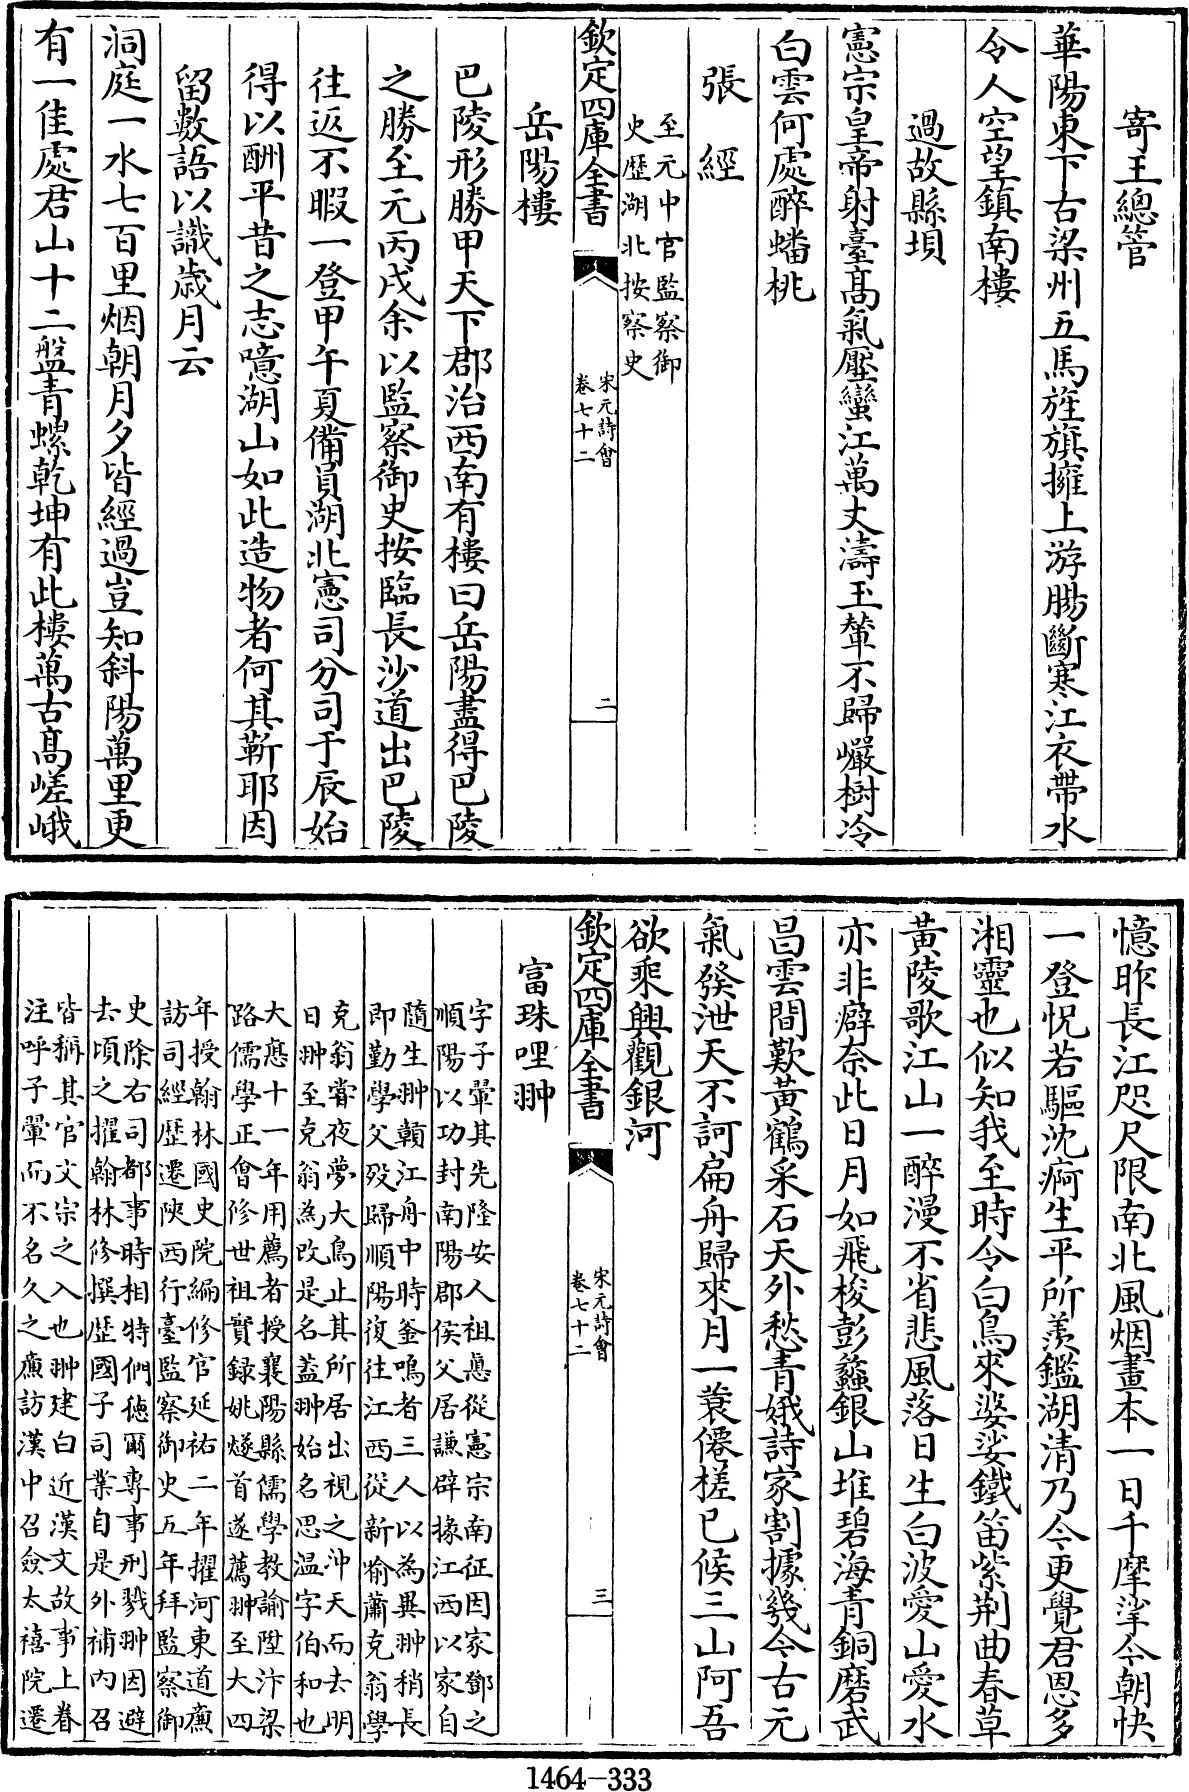 寄王總管
華陽東下古梁州五馬旌旗擁上游腸斷寒江衣帶水
令人空望鎮南樓
過故縣垻
憲宗皇帝射臺髙氣壓蠻江萬丈濤玉輦不歸巖樹冷
白雲何處醉蟠桃
張經
至元中官監察御
史歴湖北按察史
欽定四庫全書
宋元詩會
卷七十二
二
岳陽樓
巴陵形勝甲天下郡治西南有樓曰岳陽盡得巴陵
之勝至元丙戌余以監察御史按臨長沙道出巴陵
往返不暇一登甲午夏備員湖北憲司分司于辰始
得以酬平昔之志噫湖山如此造物者何其靳耶因
留數語以識歳月云
洞庭一水七百里烟朝月夕皆經過豈知斜陽萬里更
有一佳處君山十二盤青螺乾坤有此樓萬古髙嵯峨
憶昨長江咫尺限南北風烟畫本一日千摩挲今朝快
一登怳若驅沈疴生平所羨鑑湖清乃今更覺君恩多
湘靈也似知我至時令白鳥來婆娑鐵笛紫荆曲春草
黄陵歌江山一醉漫不省悲風落日生白波愛山愛水
亦非癖奈此日月如飛梭彭蠡銀山堆碧海青銅磨武
昌雲間歎黄鶴采石天外愁青娥詩家割據幾今古元
氣發泄天不訶扁舟歸來月一蓑僊槎已候三山阿吾
欲乘興觀銀河
欽定四庫全書
宋元詩會
卷七十二
三
富珠哩翀
字子翬其先隆安人祖徳從憲宗南征因家鄧之
順陽以功封南陽郡侯父居謙辟掾江西以家自
隨生翀贑江舟中時釜鳴者三人以為異翀稍長
即勤學父殁歸順陽復往江西從新喻蕭克翁學
克翁甞夜夢大鳥止其所居出視之沖天而去明
日翀至克翁為改是名葢翀始名思温字伯和也
大徳十一年用薦者授襄陽縣儒學教諭陞汴梁
路儒學正會修世祖實録姚燧首遂薦翀至大四
年授翰林國史院編修官延祐二年擢河東道亷
訪司經歴遷陜西行臺監察御史五年拜監察御
史除右司都事時相特們徳爾專事刑戮翀因避
去頃之擢翰林修撰歴國子司業自是外補内召
皆稱其官文宗之入也翀建白近漢文故事上眷
注呼子翬而不名久之亷訪漢中召僉太禧院遷
1464-333